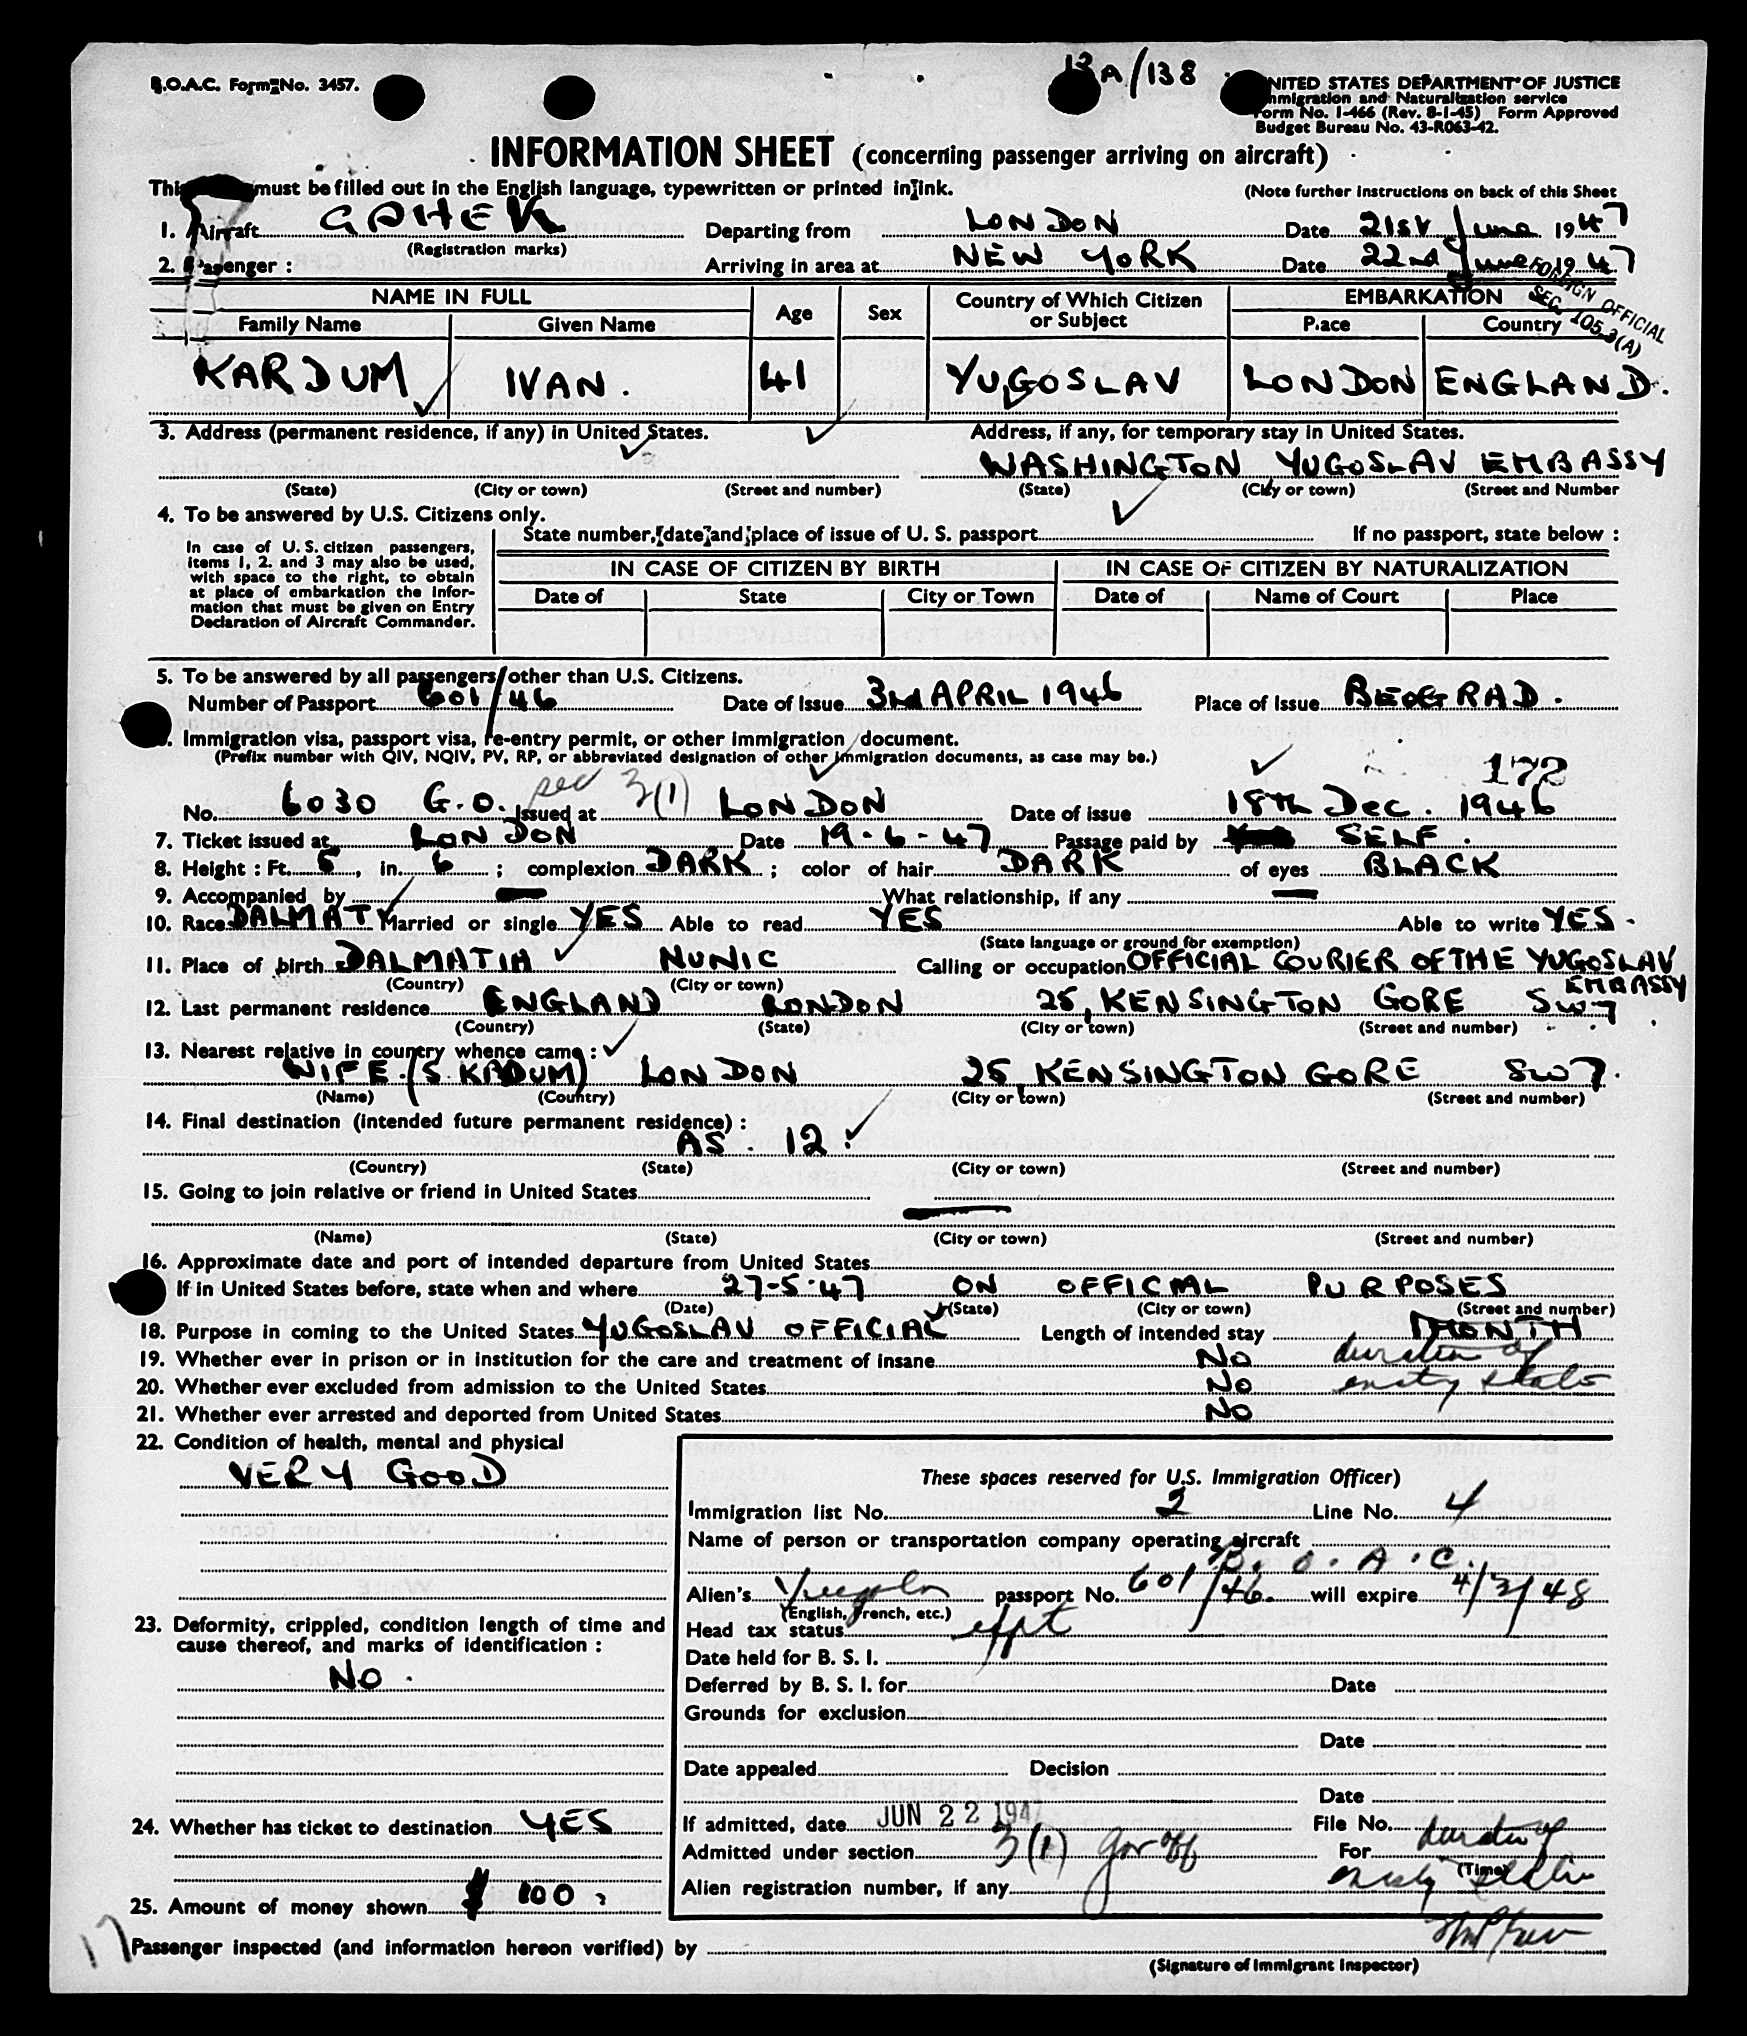 B.O.A.C. Form No. 3457.
12A/138
UNITED STATES DEPARTMENT OF JUSTICE
Immigration and Naturalization service
Form No. I-466 (Rev. 8-1-45) Form Approved
Budget Bureau No. 43-R063-42.
INFORMATION SHEET (concerning passenger arriving on aircraft)
This must be filled out in the English language, typewritten or printed in ink.
(Note further instructions on back of this Sheet
1. Aircraft GAHEK Departing from LONDON Date 21st June 1947
(Registration marks)
2. Passenger : Arriving in area at NEW YORK Date 22nd June 1947
FOREIGN OFFICIAL
SEC. 105.3(A)
NAME IN FULL Age Sex Country of Which Citizen or Subject EMBARKATION
Family Name Given Name Place Country
KARDUM IVAN. 41 YUGOSLAV LONDON ENGLAND.
3. Address (permanent residence, if any) in United States. Address, if any, for temporary stay in United States.
WASHINGTON YUGOSLAV EMBASSY
(State) (City or town) (Street and number) (State) (City or town) (Street and Number
4. To be answered by U.S. Citizens only.
State number, date and place of issue of U. S. passport If no passport, state below :
In case of U. S. citizen passengers,
items 1, 2. and 3 may also be used,
with space to the right, to obtain
at place of embarkation the Infor-
mation that must be given on Entry
Declaration of Aircraft Commander.
IN CASE OF CITIZEN BY BIRTH IN CASE OF CITIZEN BY NATURALIZATION
Date of State City or Town Date of Name of Court Place
5. To be answered by all passengers other than U.S. Citizens.
Number of Passport 601/46 Date of Issue 3rd APRIL 1946 Place of Issue BEOGRAD.
Immigration visa, passport visa, re-entry permit, or other immigration document.
(Prefix number with QIV, NQIV, PV, RP, or abbreviated designation of other immigration documents, as case may be.)
172
No. 6030 G.O. sec 3(1) Issued at LONDON Date of issue 18TH DEC. 1946
7. Ticket issued at LONDON Date 19-6-47 Passage paid by SELF.
8. Height : Ft. 5, in. 6 ; complexion DARK ; color of hair DARK of eyes BLACK
9. Accompanied by — What relationship, if any —
10. Race DALMATY Married or single YES Able to read YES Able to write YES.
(State language or ground for exemption)
11. Place of birth DALMATIA NUNIC Calling or occupation OFFICIAL COURIER OF THE YUGOSLAV EMBASSY
(Country) (City or town)
12. Last permanent residence ENGLAND LONDON 25, KENSINGTON GORE SW7
(Country) (State) (City or town) (Street and number)
13. Nearest relative in country whence came :
WIFE. (S. KADUM) LONDON 25, KENSINGTON GORE SW7.
(Name) (Country) (City or town) (Street and number)
14. Final destination (intended future permanent residence) :
AS. 12.
(Country) (State) (City or town) (Street and number)
15. Going to join relative or friend in United States
—
(Name) (State) (City or town) (Street and number)
16. Approximate date and port of intended departure from United States
If in United States before, state when and where 27-5-47 ON OFFICIAL PURPOSES
(Date) (State) (City or town) (Street and number)
18. Purpose in coming to the United States YUGOSLAV OFFICIAL Length of intended stay MONTH
duration of
19. Whether ever in prison or in institution for the care and treatment of insane NO
20. Whether ever excluded from admission to the United States NO
21. Whether ever arrested and deported from United States NO
22. Condition of health, mental and physical
VERY GOOD
23. Deformity, crippled, condition length of time and
cause thereof, and marks of identification :
NO.
24. Whether has ticket to destination YES
25. Amount of money shown $ 100
These spaces reserved for U.S. Immigration Officer)
Immigration list No. 2 Line No. 4
Name of person or transportation company operating aircraft
B.O.A.C.
Alien's passport No. 601/46. will expire 4/3/48
(English, French, etc.)
Head tax status
Date held for B. S. I.
Deferred by B. S. I. for Date
Grounds for exclusion
Date
Date appealed Decision
Date
If admitted, date JUN 22 1947 File No.
Admitted under section 3(1) gov off For duration of
(Time)
Alien registration number, if any
17
Passenger inspected (and information hereon verified) by
(Signature of Immigrant Inspector)